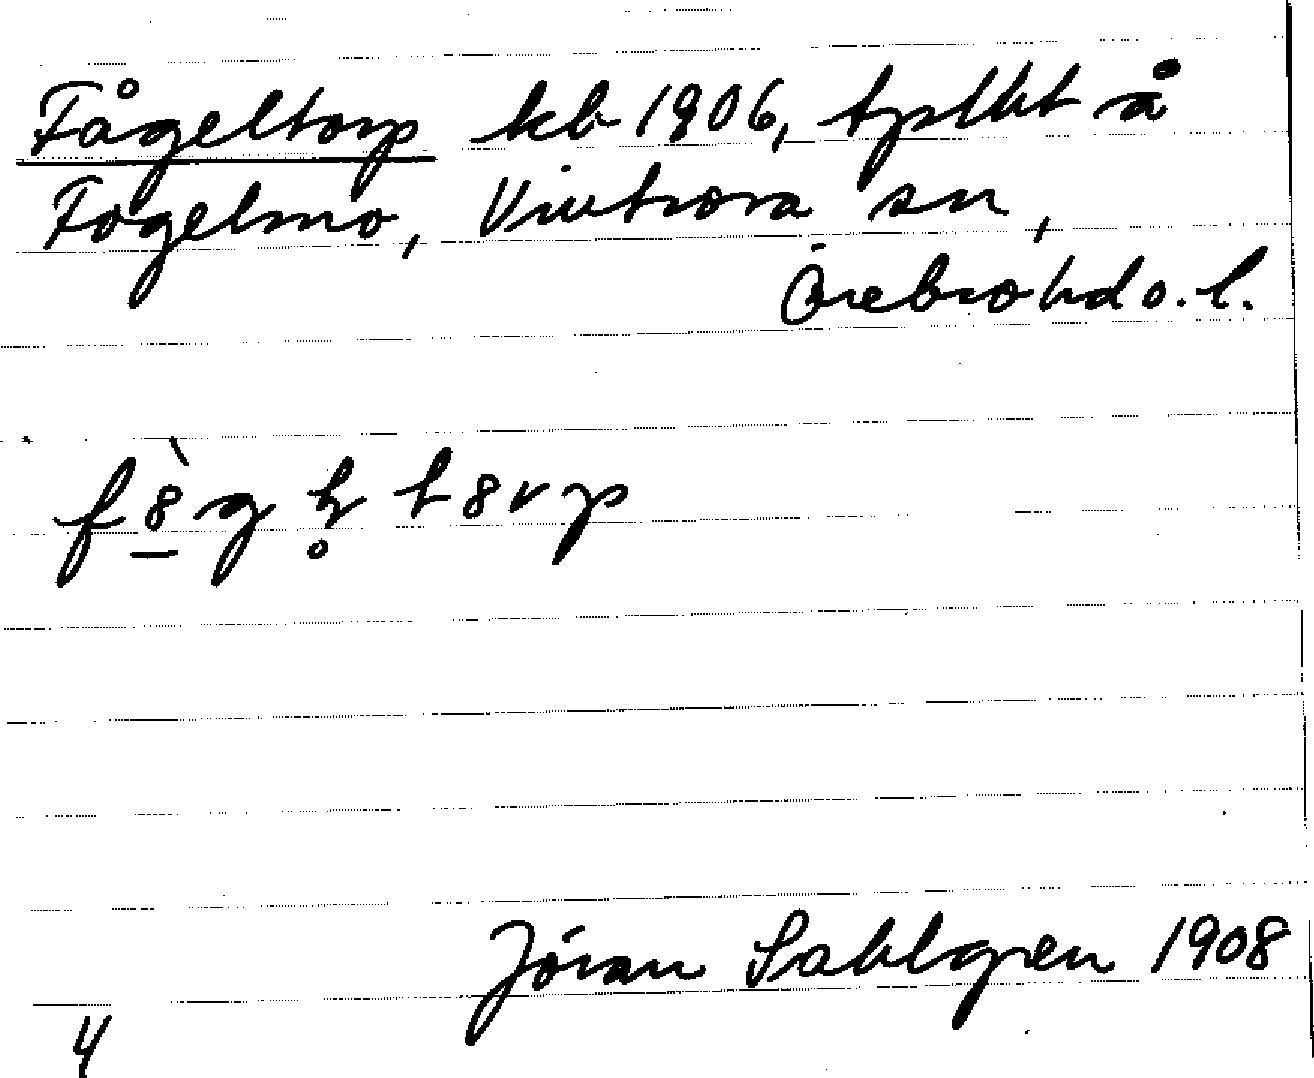 Fågeltorp kb 1906, tpltht å
Fogelmo, Vintrosa sn,
Örebro hd o. l.
Jöran Sahlgren 1908
4